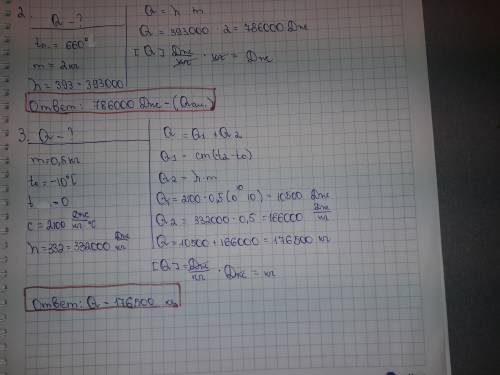 2. Q - ?
tп. = 660°
m = 2кг
λ = 393 = 393000
Q = λ m
Q = 393000 · 2 = 786000 Дж
[Q] Дж/кг · кг = Дж
Ответ: 786000 Дж - (Qал.)
3. Q - ?
m = 0,5 кг
t₀ = -10°C
t = 0
c = 2100 Дж/кг °C
λ = 332 = 332000 Дж/кг
Q = Q1 + Q2
Q1 = cm(t2 - t0)
Q2 = λ · m
Q1 = 2100 · 0,5 (0 10) = 10500 Дж
Q2 = 332000 · 0,5 = 166000 Дж/кг
Q = 10500 + 166000 = 176500 кг
[Q] = Дж/кг · Дж = кг
Ответ: Q - 176500